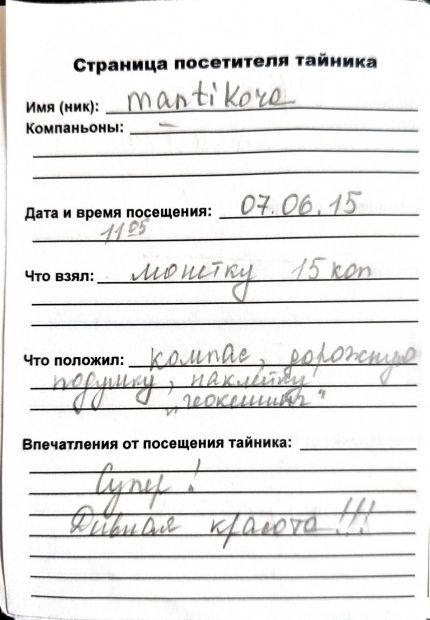 Страница посетителя тайника
Имя (ник): mantikora
Компаньоны: –
Дата и время посещения: 07.06.15
11 05
Что взял: монетку 15 коп
Что положил: компас, дорожную
подушку, наклейку
"геокешинг"
Впечатления от посещения тайника:
Супер!
Дивная красота!!!